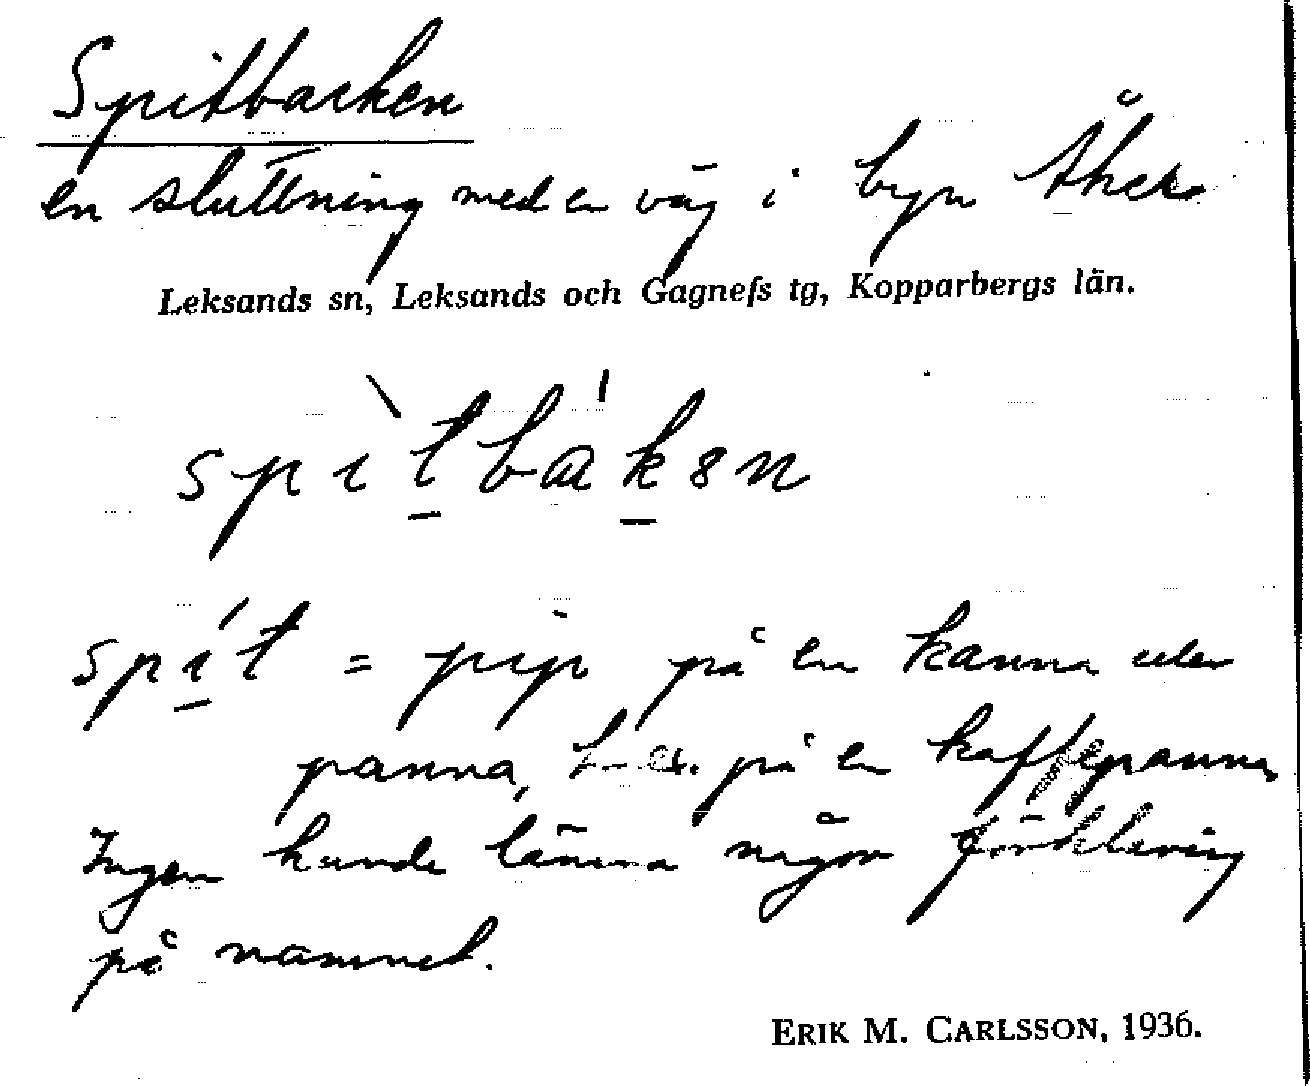 Spitbacken
en sluttning med en väg i byn Åkerö
Leksands sn, Leksands och Gagnefs tg, Kopparbergs län.
spìtbákən
spít = pip på en kanna eller
panna, t. ex. på en kaffepanna
Ingen kunde lämna någon förklaring
på namnet.
ERIK M. CARLSSON, 1936.